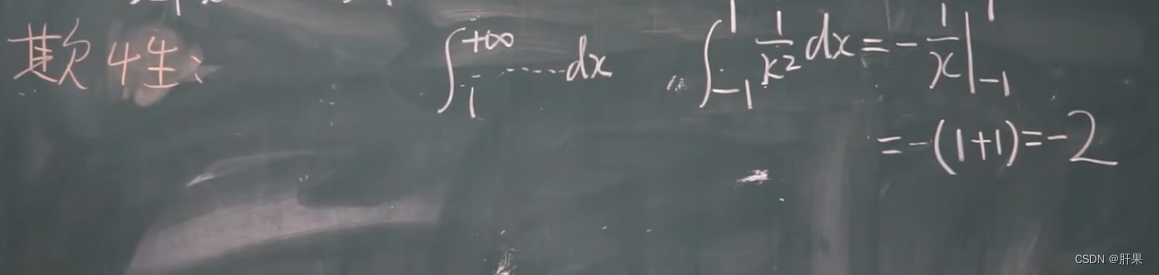 欺性:
∫_1^{+∞} ……dx
∫_{-1}^{1} 1/x² dx = -1/x |_{-1}^{1}
= -(1+1) = -2
CSDN @肝果